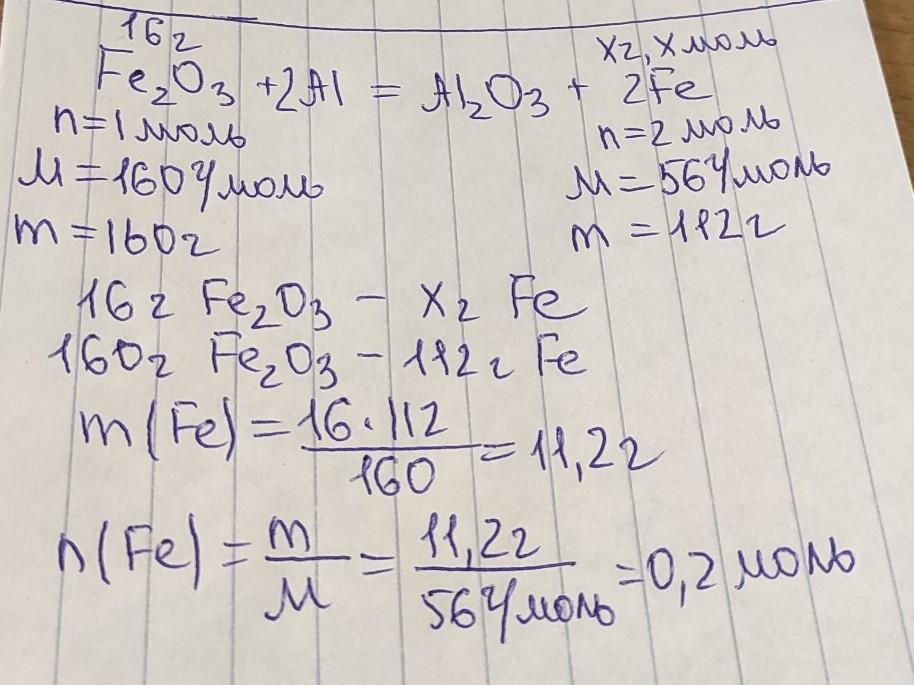 16г
xг, x моль
Fe₂O₃ + 2Al = Al₂O₃ + 2Fe
n=1 моль
n=2 моль
M=160 г/моль
M=56 г/моль
m=160г
m=112г
16г Fe₂O₃ - xг Fe
160г Fe₂O₃ - 112г Fe
m(Fe) = 16·112 / 160 = 11,2г
n(Fe) = m / M = 11,2г / 56 г/моль = 0,2 моль